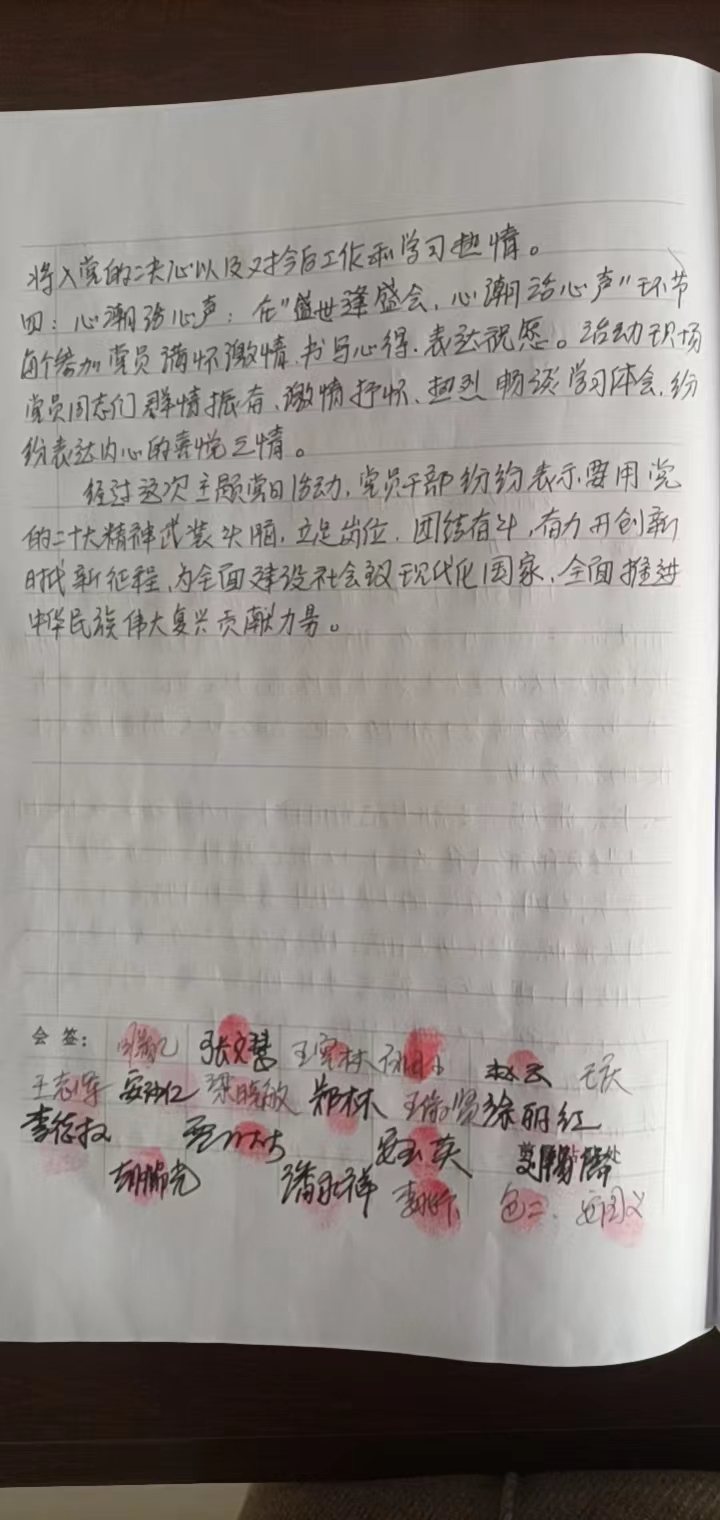 将入党的决心以及对今后工作和学习热情。
四：心潮话心声：在"盛世逢盛会，心潮话心声"环节
每个参加党员满怀激情、书写心得、表达祝愿。活动现场
党员同志们群情振奋、激情抒怀、热烈畅谈学习体会，纷
纷表达内心的喜悦之情。
经过这次主题党日活动，党员干部纷纷表示要用党
的二十大精神武装头脑，立足岗位，团结奋斗，奋力开创新
时代新征程，为全面建设社会议现代化国家、全面推进
中华民族伟大复兴贡献力量。
会签：
张文慧 赵云 王庆
王志军 梁晓敏 郑林 徐丽红
李德权
潘永祥 包二